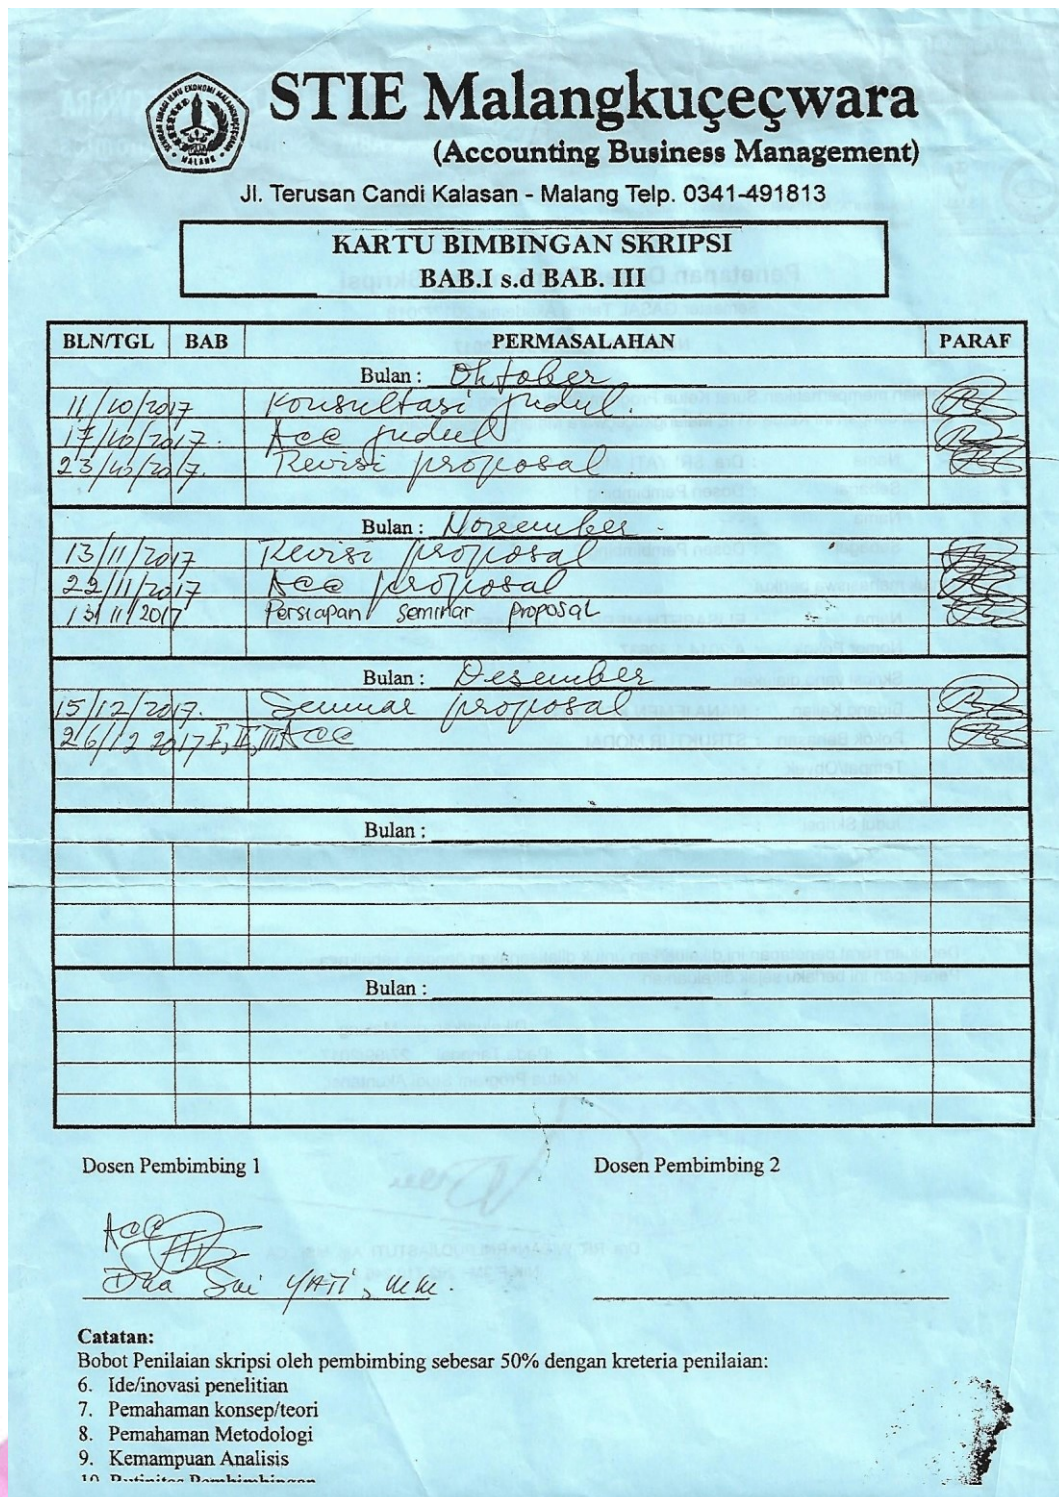 STIE Malangkuçeçwara
(Accounting Business Management)
Jl. Terusan Candi Kalasan - Malang Telp. 0341-491813
KARTU BIMBINGAN SKRIPSI
BAB.I s.d BAB. III
BLN/TGL BAB PERMASALAHAN PARAF
Bulan : Oktober
11/10/2017 Konsultasi judul.
17/10/2017. Acc judul
23/10/2017. Revisi proposal
Bulan : November
13/11/2017 Revisi proposal
22/11/2017 Acc proposal
11/2017 Persiapan seminar proposal
Bulan : Desember
15/12/2017. Seminar proposal
26/12 2017 I, II, III Acc
Bulan :
Bulan :
Dosen Pembimbing 1 Dosen Pembimbing 2
Acc
Dra Sri YATI, MM.
Catatan:
Bobot Penilaian skripsi oleh pembimbing sebesar 50% dengan kreteria penilaian:
6. Ide/inovasi penelitian
7. Pemahaman konsep/teori
8. Pemahaman Metodologi
9. Kemampuan Analisis
10. Rutinitas Pembimbingan